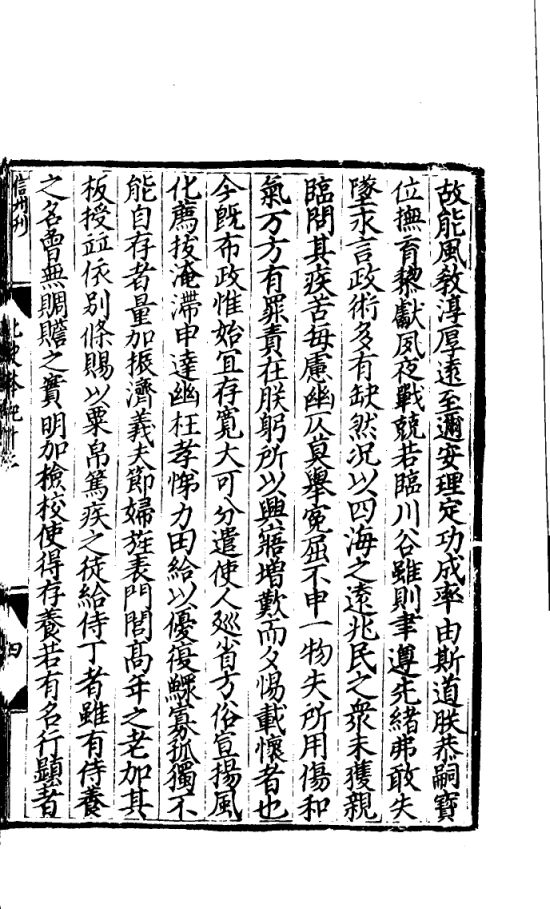 故能風敎淳厚遠至邇安理定功成率由斯道朕恭嗣寶
位撫育黎獻夙夜戰兢若臨川谷雖則聿遵先緒弗敢失
墜求言政術多有缺然況以四海之遠兆民之衆未獲親
臨問其疾苦每慮幽仄莫舉寃屈不申一物失所用傷和
氣万方有罪責在朕躬所以興寤増歎而夕惕載懷者也
今旣布政惟始宜存寛大可分遣使人廵省方俗宣揚風
化薦拔淹滯申達幽枉孝悌力田給以優復鰥寡孤獨不
能自存者量加振濟義夫節婦旌表門閭髙年之老加其
板授並依别條賜以粟帛篤疾之徒給侍丁者雖有侍養
之名曽無賙贍之實明加檢校使得存養若有名行顯者
信州刋
北史本紀十二
四